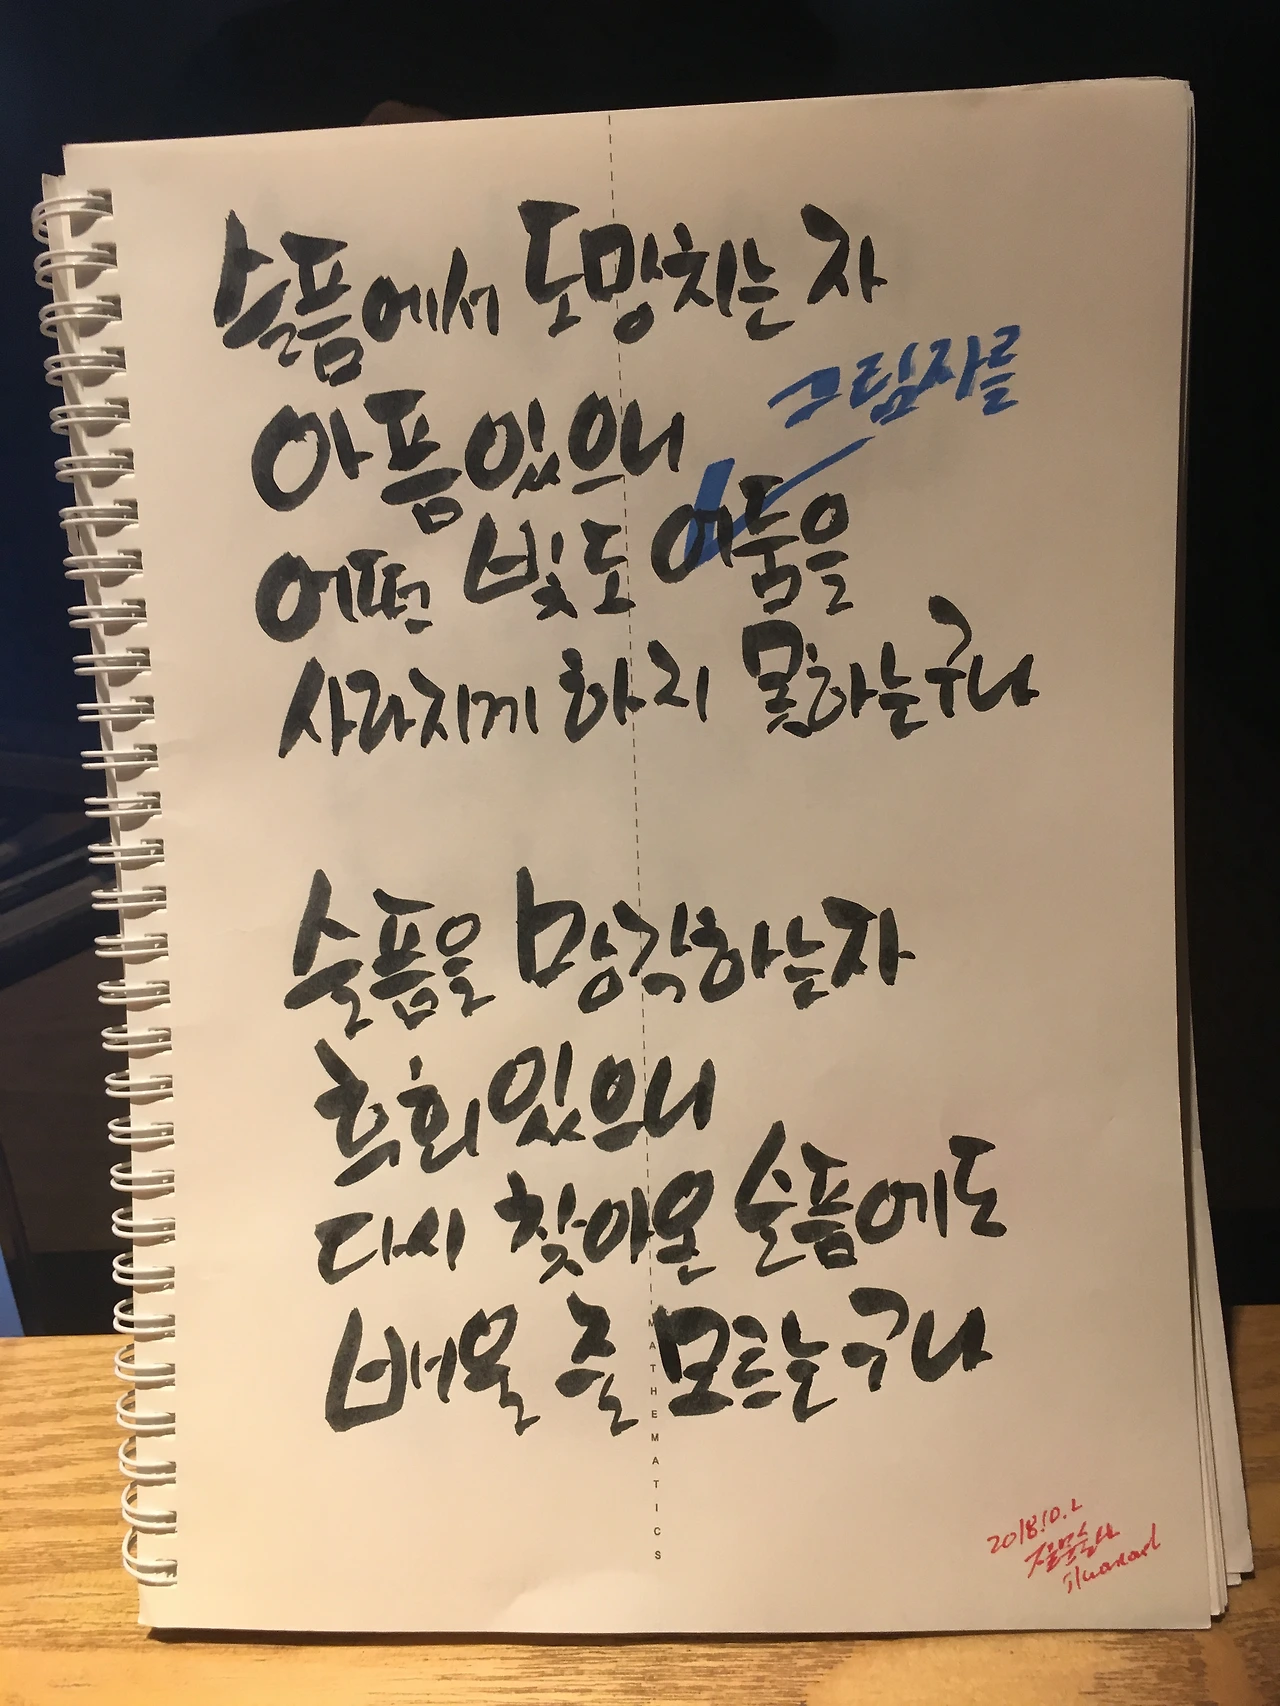 슬픔에서 도망치는 자
그림자를
아픔 있으니
어떤 빛도 어둠을
사라지게 하지 못하는구나
슬픔을 망각하는 자
후회 있으니
다시 찾아온 슬픔에도
배울 줄 모르는구나
MATHEMATICS
2018.10.2